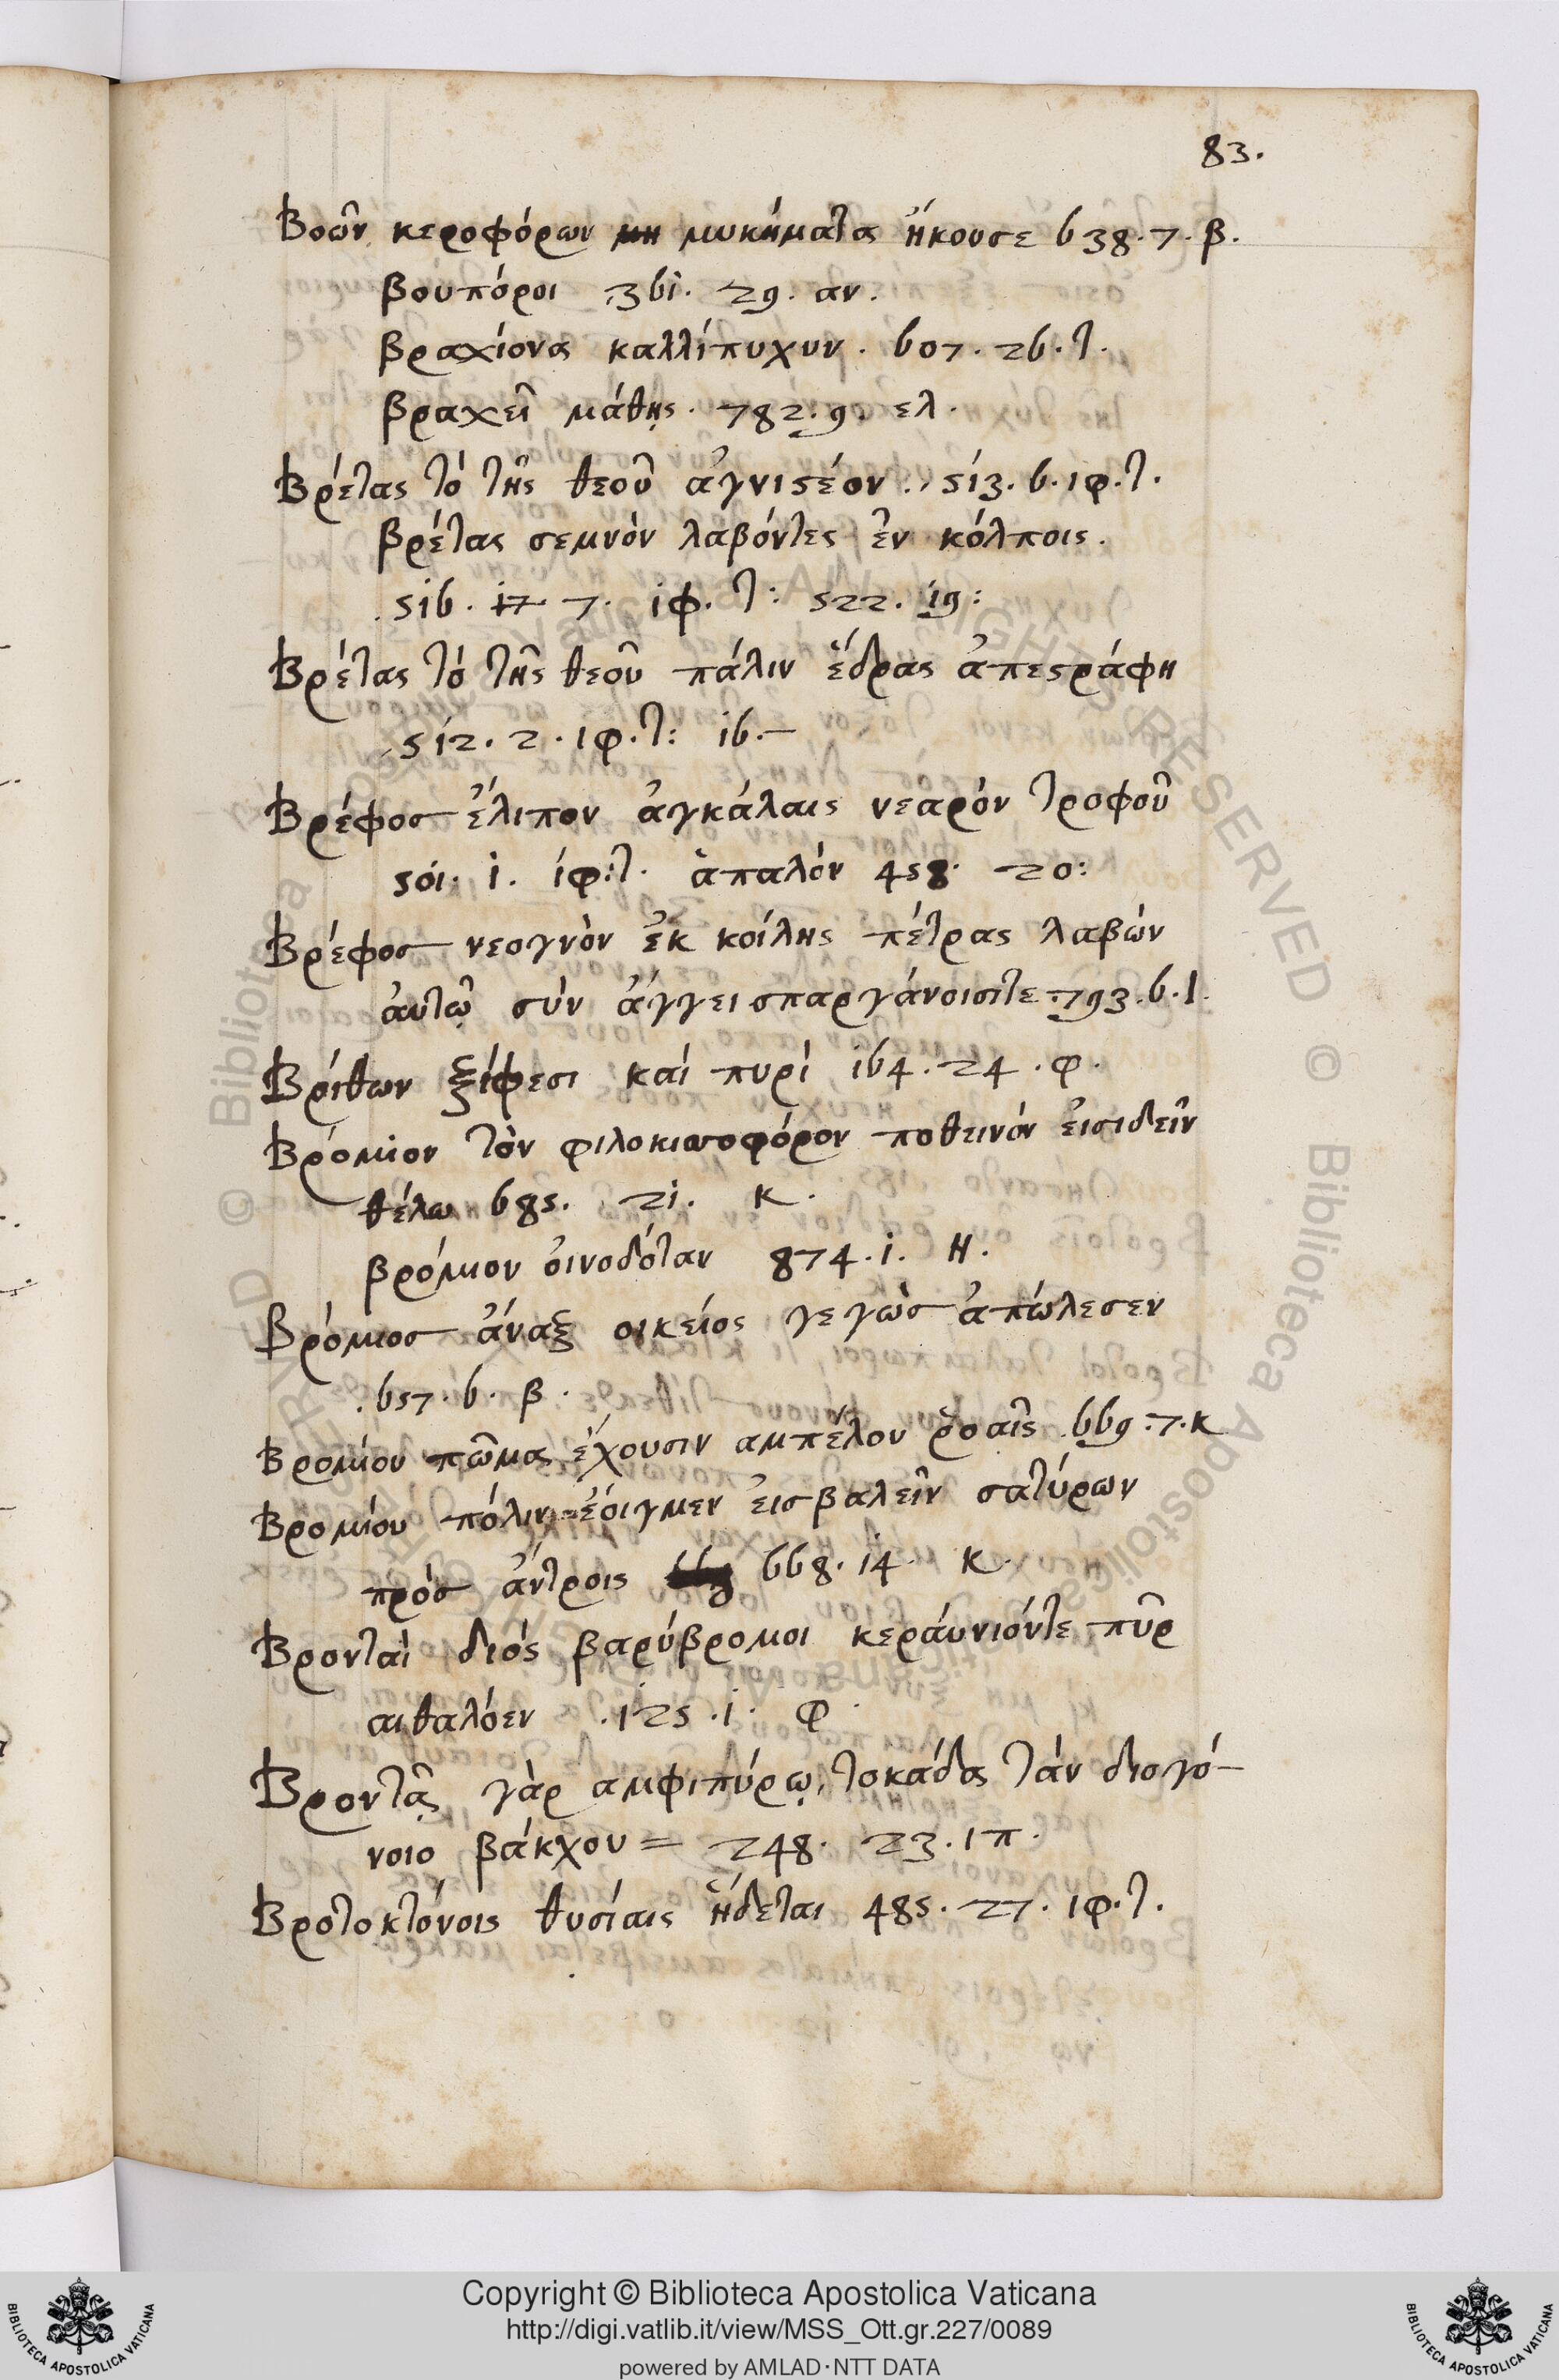 83.
Βοῶν κεροφόρων μη μυκήματα ἤκουσε 638. 7. β.
βουπόροι 361. 29. αν.
βραχίονα καλλίπυχυν. 607. 26. τ.
βραχεῖ μάθῃς. 782. 9. ελ.
Βρέτας τὸ τῆς θεοῦ ἁγνιστέον. 513. 6. ιφ. τ.
βρέτας σεμνὸν λαβόντες ἐν κόλποις.
516. 17 7. ιφ. τ: 522. 19:
Βρέτας τὸ τῆς θεοῦ πάλιν ἕδρας ἀπεστράφη
512. 2. ιφ. τ: 16.—
Βρέφος ἔλιπον ἀγκάλαις νεαρόν τροφοῦ
501. 1. ιφ: τ. ἁπαλόν 458. 20:
Βρέφος νεογνὸν ἐκ κοίλης πέτρας λαβών
ἀυτῷ σὺν ἄγγει σπαργάνοισίτε. 793. 6. Ι.
Βρίθων ξίφεσι καί πυρί 164. 24. φ.
Βρόμιον τὸν φιλοκισσοφόρον ποθεινόν εἰσιδεῖν
θέλω 685. 21. κ.
βρόμιον οἰνοδόταν 874. 1. Η.
Βρόμιος ἄναξ οικείος γεγὼς ἀπώλεσεν
657. 6. β.
Βρομίου πῶμα ἔχουσιν αμπέλου ῥοαῖς 669. 7. κ
Βρομίου πόλιν ἔοιγμεν εἰσβαλεῖν σατύρων
πρὸς ἄντροις 668. 14 κ.
Βρονταὶ διός βαρύβρομοι κεράυνιόντε πῦρ
αιθαλόεν 125. 1. φ
Βροντᾷ γὰρ αμφιπύρῳ, τοκάδα τὰν διογό-
νοιο βάκχου = 248. 23. ιπ.
Βροτοκτόνοις θυσίαις ἥδεται 485. 27. ιφ. τ.
Copyright © Biblioteca Apostolica Vaticana
http://digi.vatlib.it/view/MSS_Ott.gr.227/0089
powered by AMLAD·NTT DATA
BIBLIOTECA APOSTOLICA VATICANA
BIBLIOTECA APOSTOLICA VATICANA